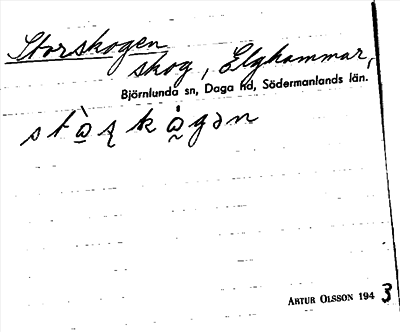 Storskogen
skog, Elghammar,
Björnlunda sn, Daga hd, Södermanlands län.
stàʂkågən
ARTUR OLSSON 1943